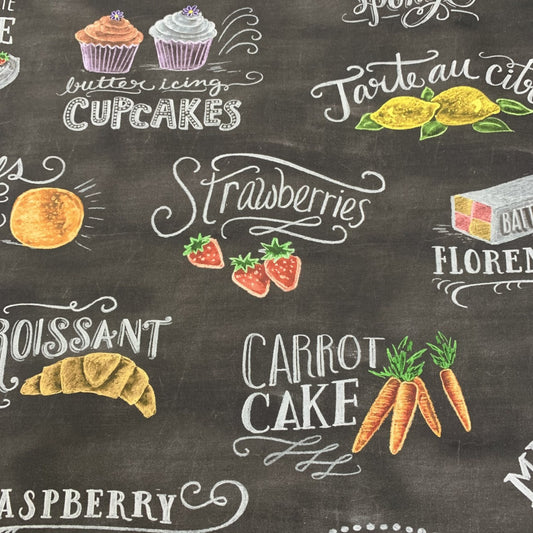 butter icing
CUPCAKES
Tarte au citr
Strawberries
BATT
FLOREN
ROISSANT
CARROT
CAKE
RASPBERRY